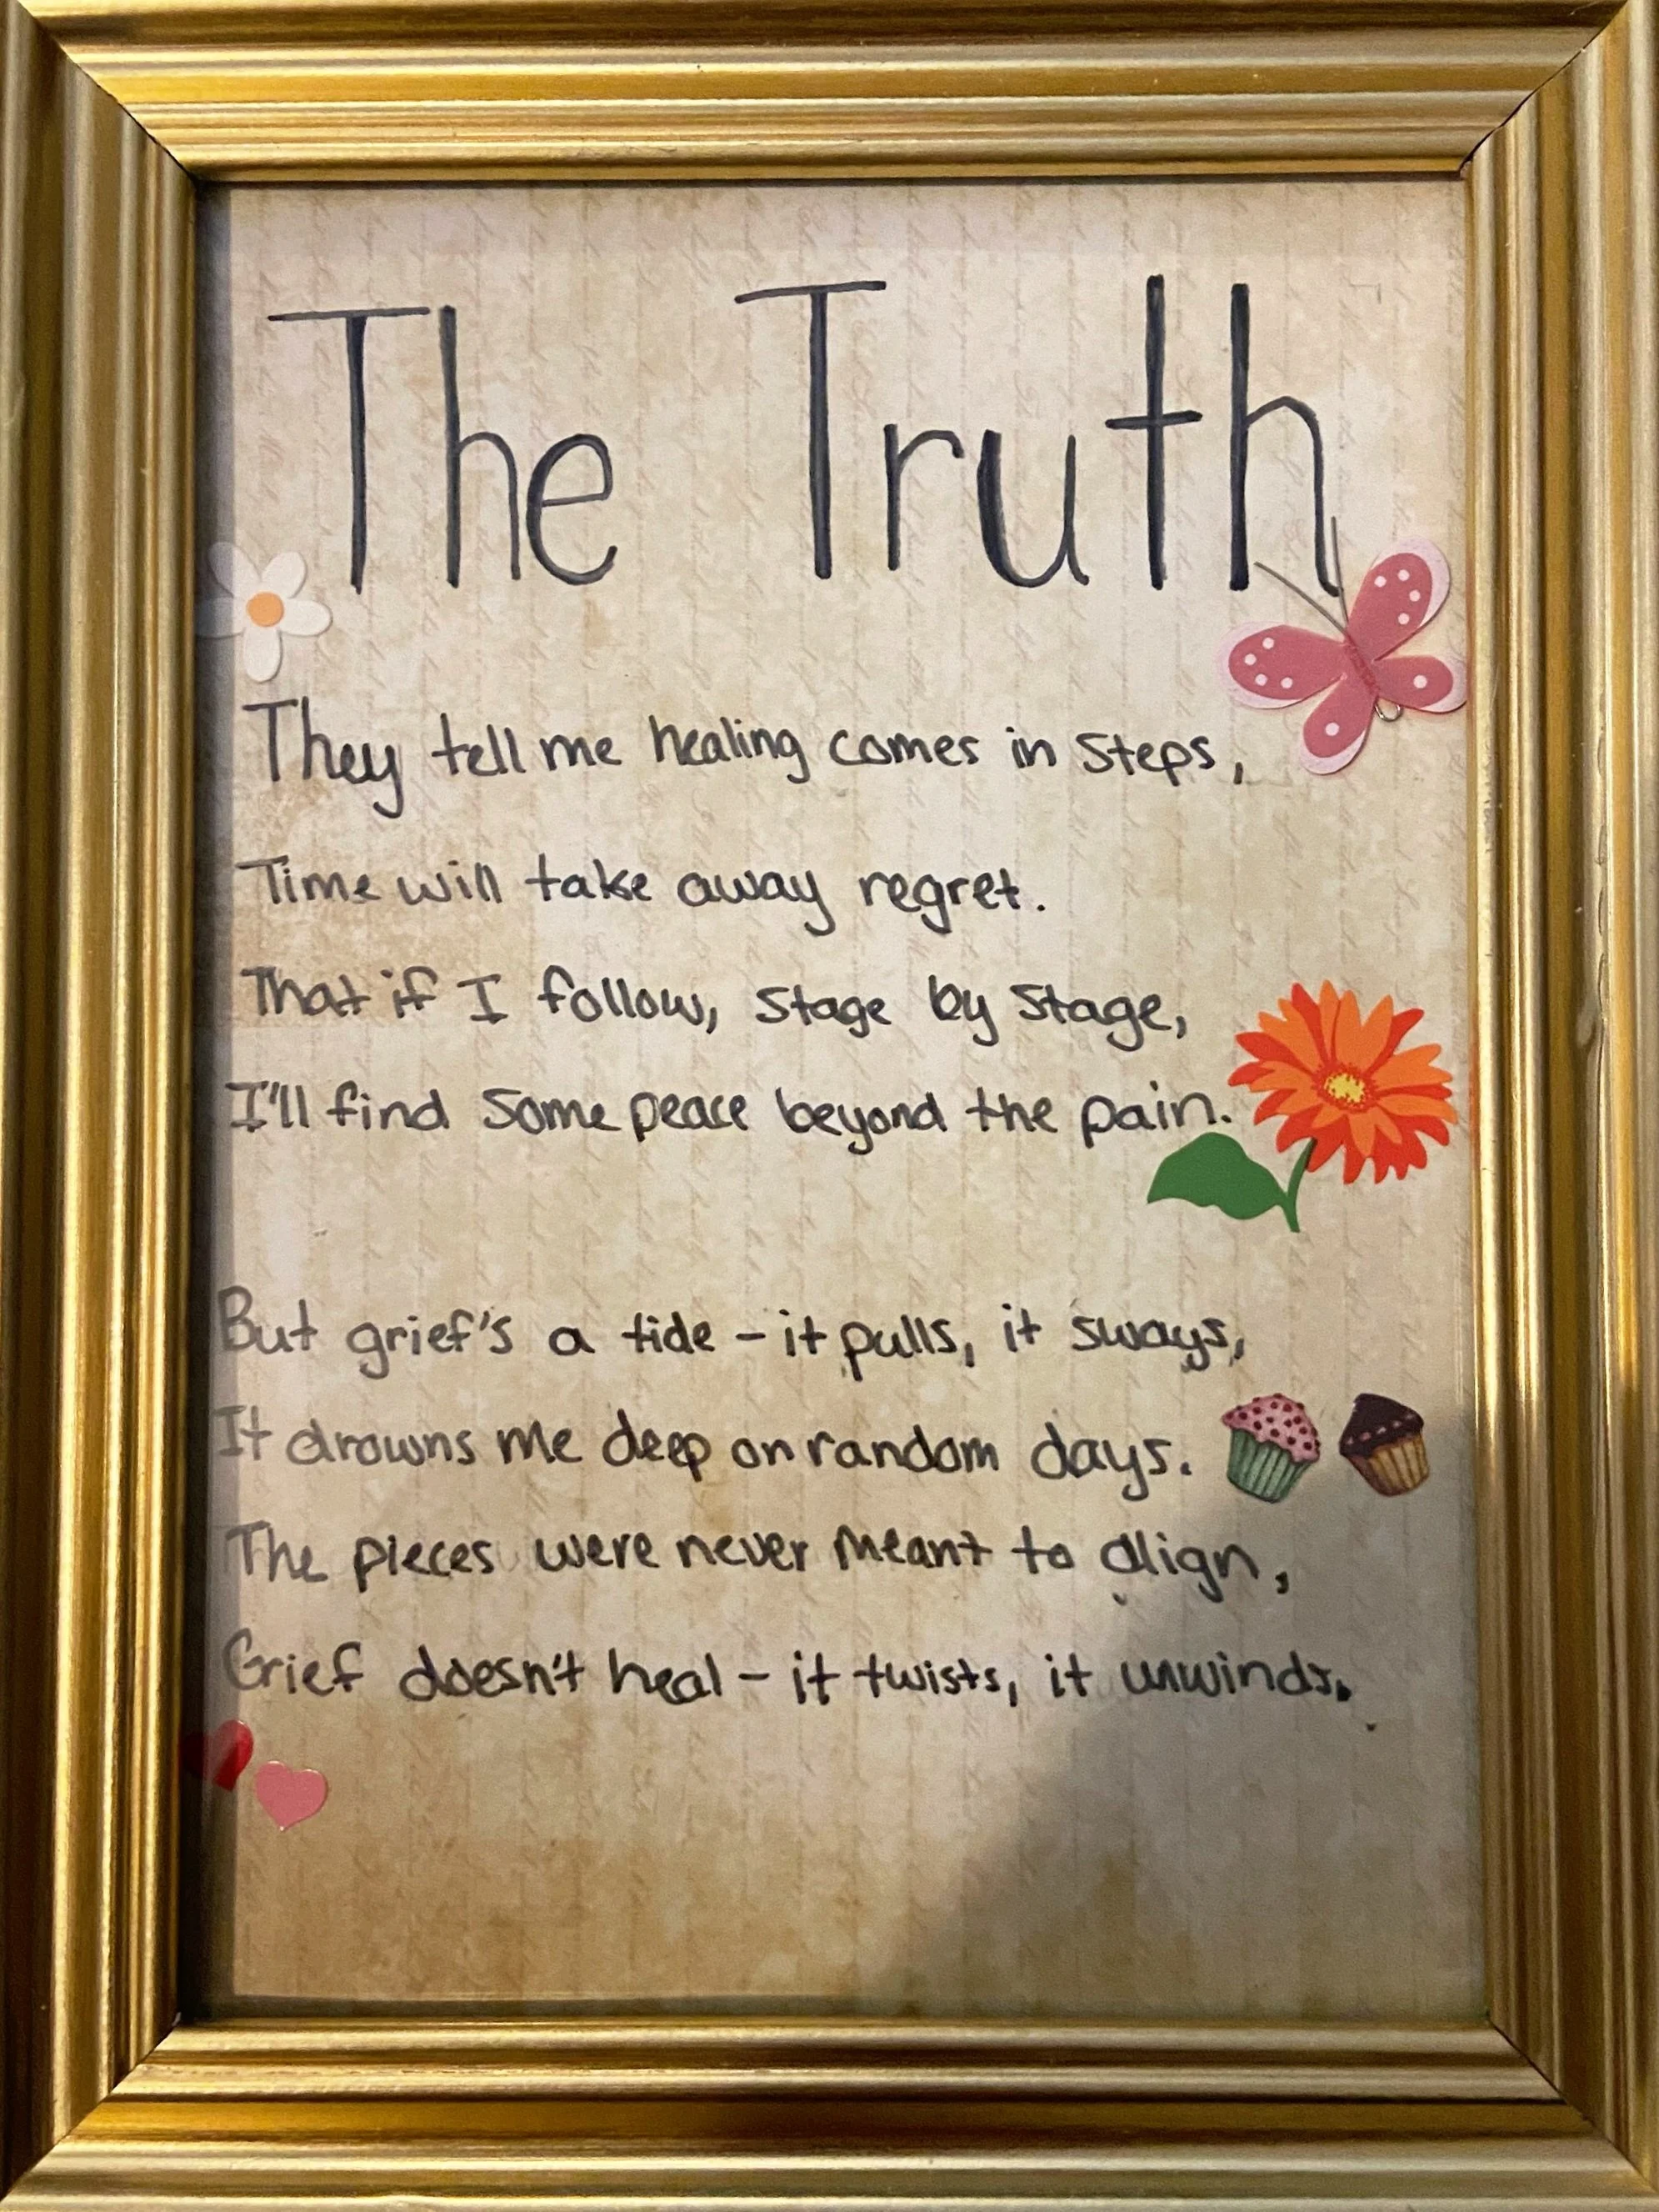 The Truth
They tell me healing comes in steps,
Time will take away regret.
That if I follow, stage by stage,
I'll find some peace beyond the pain.
But grief's a tide - it pulls, it sways,
It drowns me deep on random days.
The pieces were never meant to align,
Grief doesn't heal - it twists, it unwinds.